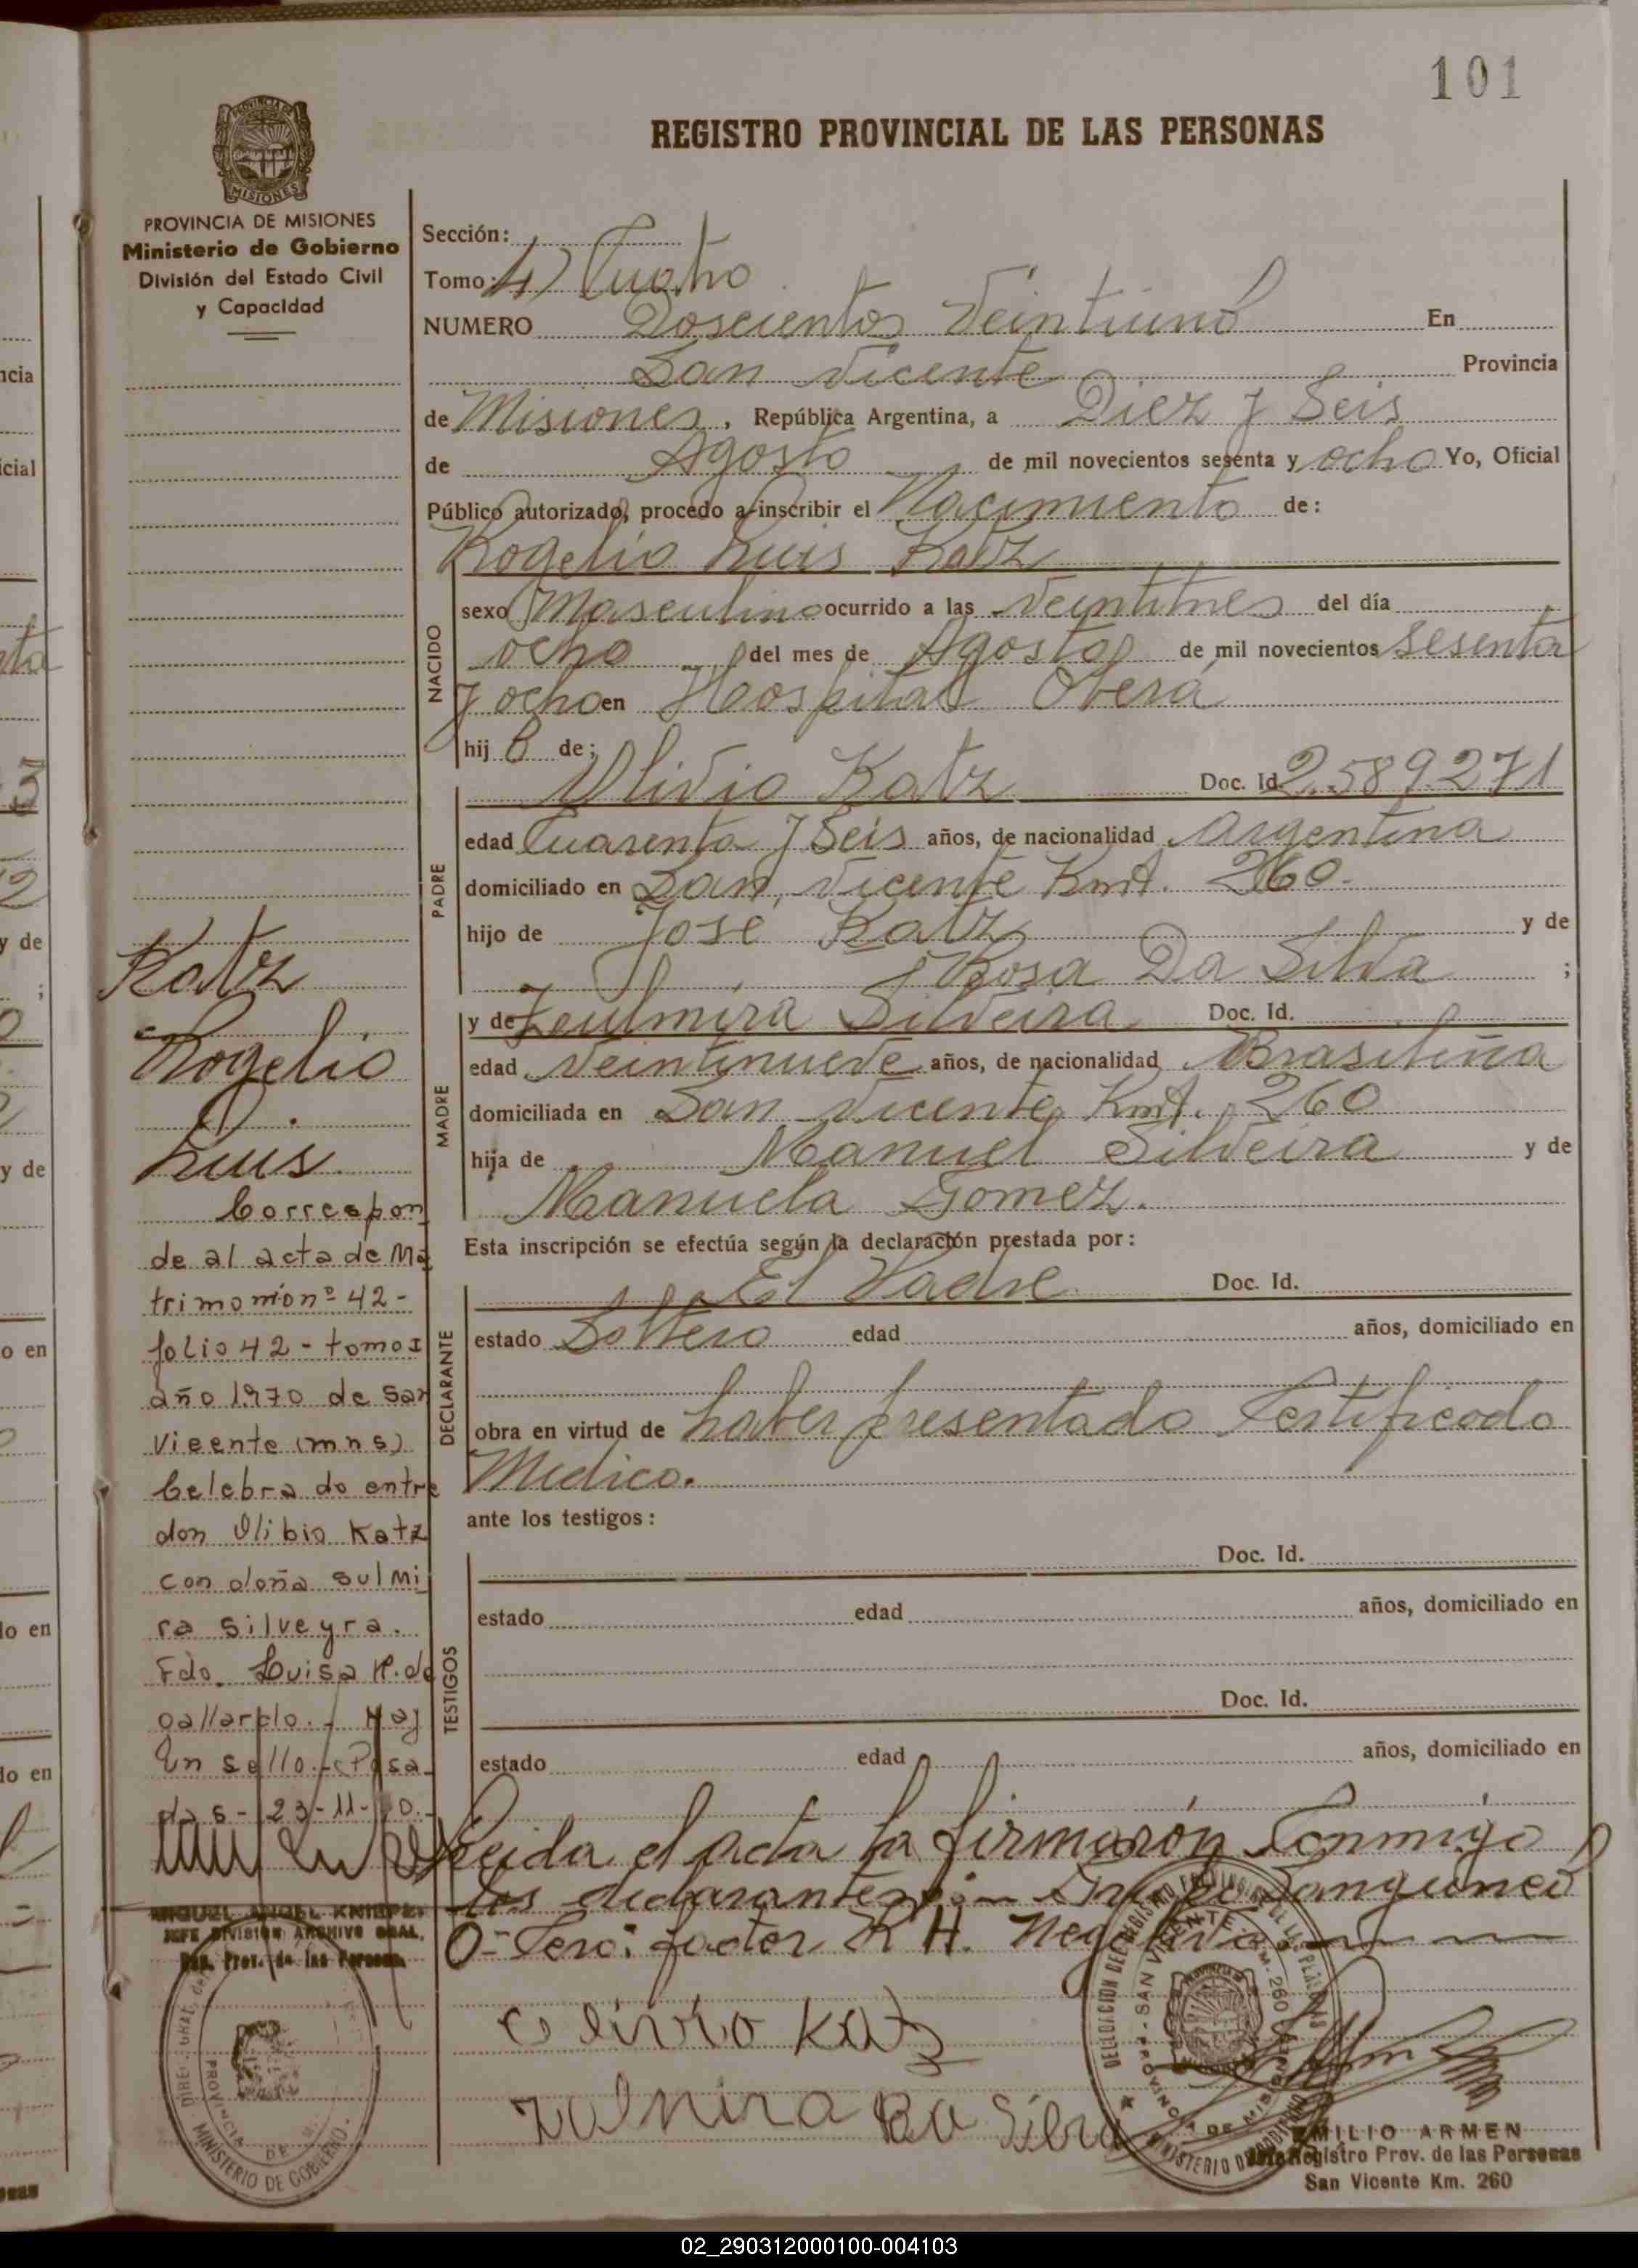 101
REGISTRO PROVINCIAL DE LAS PERSONAS
MISIONES
PROVINCIA DE MISIONES
Ministerio de Gobierno
División del Estado Civil
y Capacidad
Sección:
Tomo: 4) Cuatro
NUMERO Doscientos Veintiuno En
San Vicente Provincia
de Misiones, República Argentina, a Diez y Seis
de Agosto de mil novecientos sesenta y ocho Yo, Oficial
Público autorizado, procedo a inscribir el Nacimiento de:
Rogelio Luis Katz
NACIDO
sexo Masculino ocurrido a las Veintitres del día
ocho del mes de Agosto de mil novecientos Sesenta
y ocho en Hospital Oberá
hij o de:
PADRE
Olivio Katz Doc. Id. 2.589.271
edad Cuarenta y Seis años, de nacionalidad Argentina
domiciliado en San Vicente Kmt. 260.
hijo de Jose Katz y de
Rosa Da Silva ;
MADRE
y de Zeulmira Silveira Doc. Id.
edad Veintinueve años, de nacionalidad Brasileña
domiciliada en San Vicente Kmt. 260
hija de Manuel Silveira y de
Manuela Gomez.
Esta inscripción se efectúa según la declaración prestada por:
DECLARANTE
El Padre Doc. Id.
estado Soltero edad años, domiciliado en
obra en virtud de haber presentado Certificado
Medico.
ante los testigos:
TESTIGOS
Doc. Id.
estado edad años, domiciliado en
Doc. Id.
estado edad años, domiciliado en
Leida el acta la firmarón Conmigo
los declarantes Grupo Sanguineo
O- Cero: factor R H. Negativo
Olivio Katz
Zulmira Da Silva
EMILIO ARMEN
Registro Prov. de las Personas
San Vicente Km. 260
Katz
Rogelio
Luis
Correspon
de al acta de Ma
trimonio nº 42-
folio 42 - tomo I
año 1970 de San
Vicente (mns)
Celebra do entre
don Olibio Katz
con doña Sulmi
ra Silveyra.
Fdo. Luisa H. de
gallardo. - Hay
Un sello. - Posa
das - 23-11-
MIGUEL ANGEL KNIEPE
JEFE DIVISION ARCHIVO GRAL.
Reg. Prov. de las Personas
PROVINCIA DE
MINISTERIO DE GOBIERNO
DELEGACION DE REGISTRO PROVINCIAL DE LAS
SAN VICENTE - KM. 260
PROVINCIA DE MISIONES
02_290312000100-004103